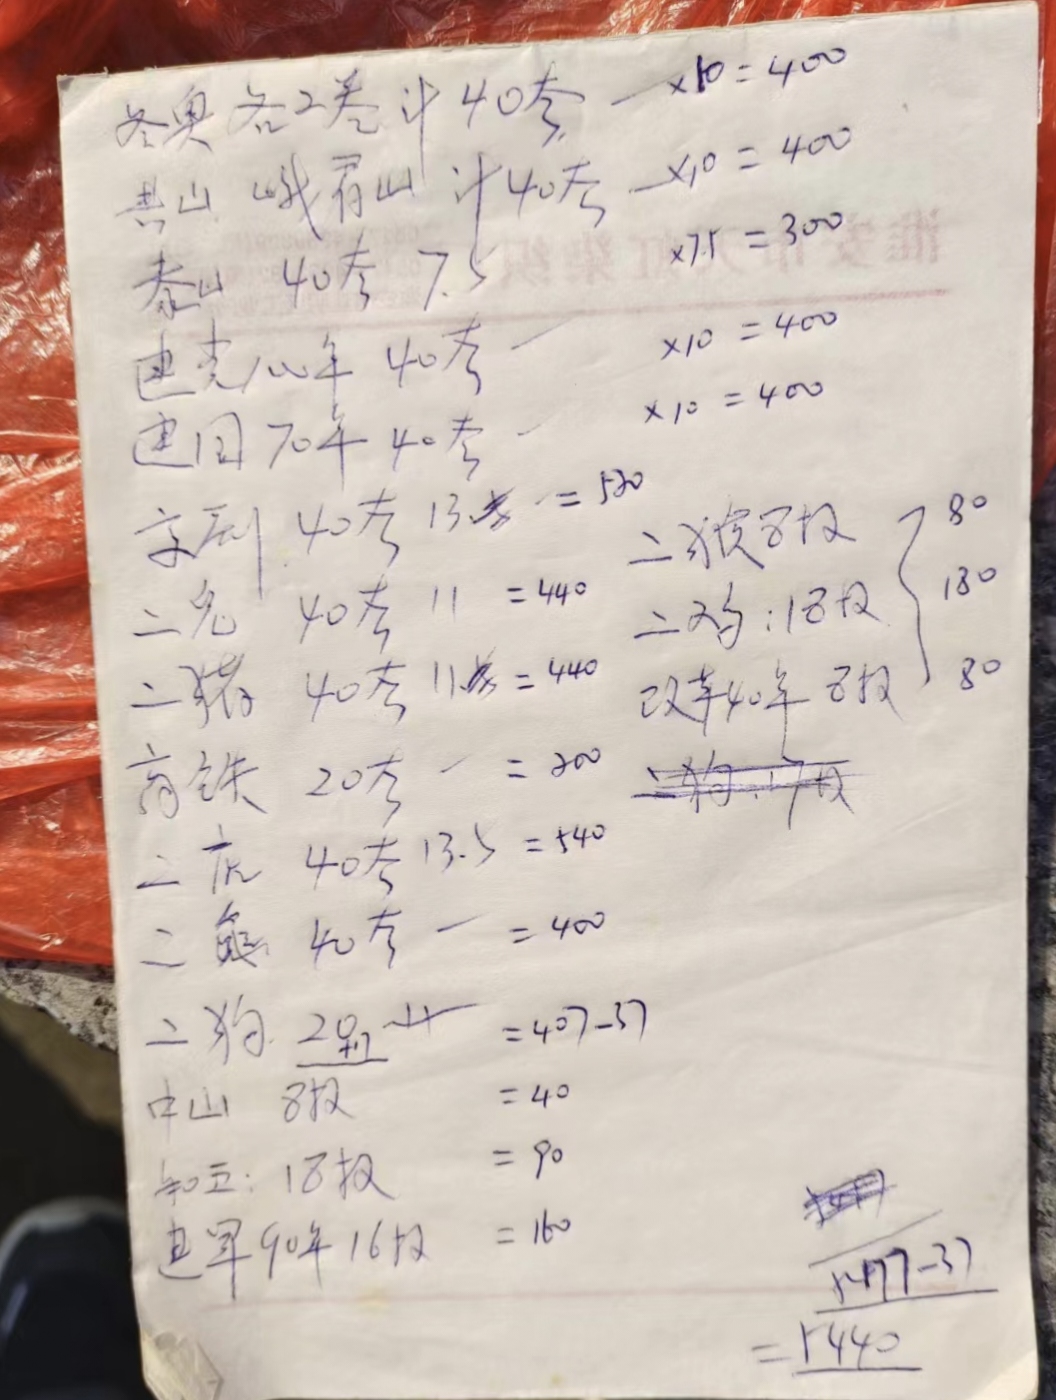 冬奥 各2卷 计 40套 — ×10 = 400
黄山 峨眉山 计40套 — ×10 = 400
泰山 40套 7.5 ×7.5 = 300
建党100年 40套 — ×10 = 400
建国70年 40套 — ×10 = 400
京剧 40套 13 = 520
二兔 40套 11 = 440
二猪 40套 11 = 440
高铁 20套 — = 200
二虎 40套 13.5 = 540
二熊 40套 — = 400
二狗 = 407-37
中山 8枚 = 40
和五: 18枚 = 90
建军90年 16枚 = 160
二猴8枚 80
二鸡:18枚 180
改革40年 8枚 80
二狗:17枚
5477-37
=5440
淮安市天虹染织